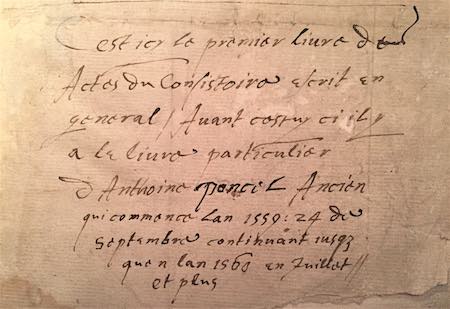 Cest icy le premier liure des
Actes du Consistoire escrit en
general / Auant cestuy ci il y
a le liure particulier
d Anthoine poncet Ancien
qui commence lan 1559 : 24 de
Septembre continuant iusqz
que n lan 1560 en Juillet //
et plus